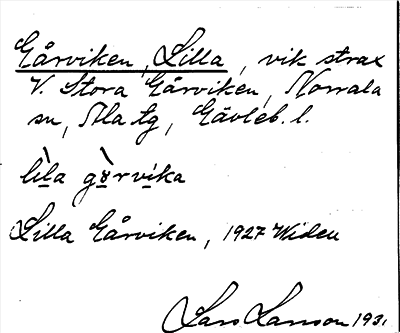 Gårviken, Lilla, vik strax
V. Stora Gårviken, Norrala
sn, Ala tg, Gävleb. l.
lìla gɤ̀rvika
Lilla Gårviken, 1927 Widen
Lars Larsson 1931